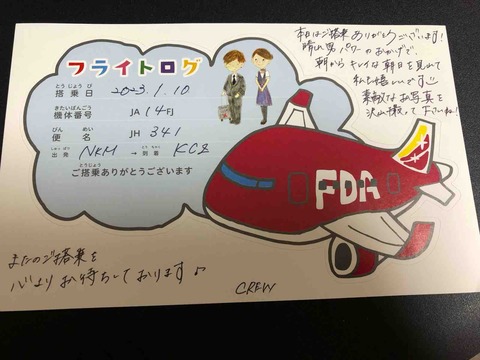 フライトログ
とうじょうび
搭乗日 2023.1.10
きたいばんごう
機体番号 JA 14FJ
びん めい
便名 JH 341
しゅっぱつ とうちゃく
出発 NKM → 到着 KCZ
とうじょう
ご搭乗ありがとうございます
本日はご搭乗ありがとうございます!
晴れ男パワーのおかげで、
朝からキレイな朝日を見れて
私も嬉しいです
素敵なお写真を
沢山撮って下さいね!
FDA
またのご搭乗を
心よりお待ちしております♪
CREW